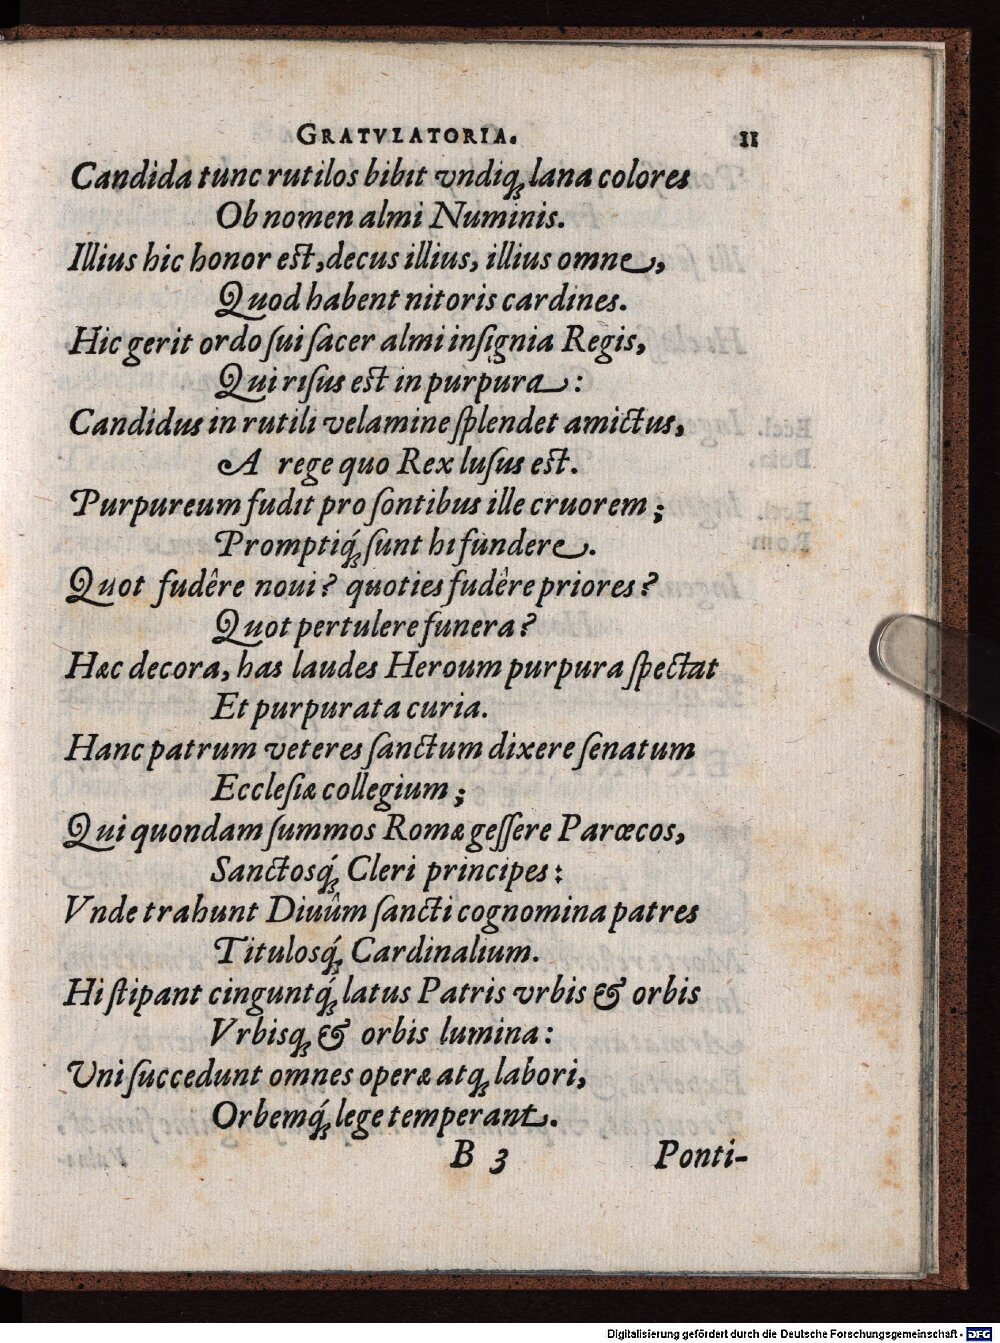 GRATVLATORIA. 11
Candida tunc rutilos bibit vndiq; lana colores
Ob nomen almi Numinis.
Illius hic honor est, decus illius, illius omne,
Quod habent nitoris cardines.
Hic gerit ordo ſui ſacer almi inſignia Regis,
Qui riſus est in purpura:
Candidus in rutili velamine ſplendet amictus,
A rege quo Rex luſus est.
Purpureum fudit pro ſontibus ille cruorem;
Promptiq́; ſunt hi fundere.
Quot fudêre noui? quoties fudêre priores?
Quot pertulere funera?
Hæc decora, has laudes Heroum purpura ſpectat
Et purpurata curia.
Hanc patrum veteres ſanctum dixere ſenatum
Eccleſiæ collegium;
Qui quondam ſummos Romæ geſſere Parœcos,
Sanctosq́; Cleri principes:
Vnde trahunt Diuûm ſancti cognomina patres
Titulosq́; Cardinalium.
Hi ſtipant cinguntq́; latus Patris vrbis & orbis
Vrbisq; & orbis lumina:
Uni ſuccedunt omnes operæ atq; labori,
Orbemq́; lege temperant.
B 3 Ponti-
Digitalisierung gefördert durch die Deutsche Forschungsgemeinschaft - DFG